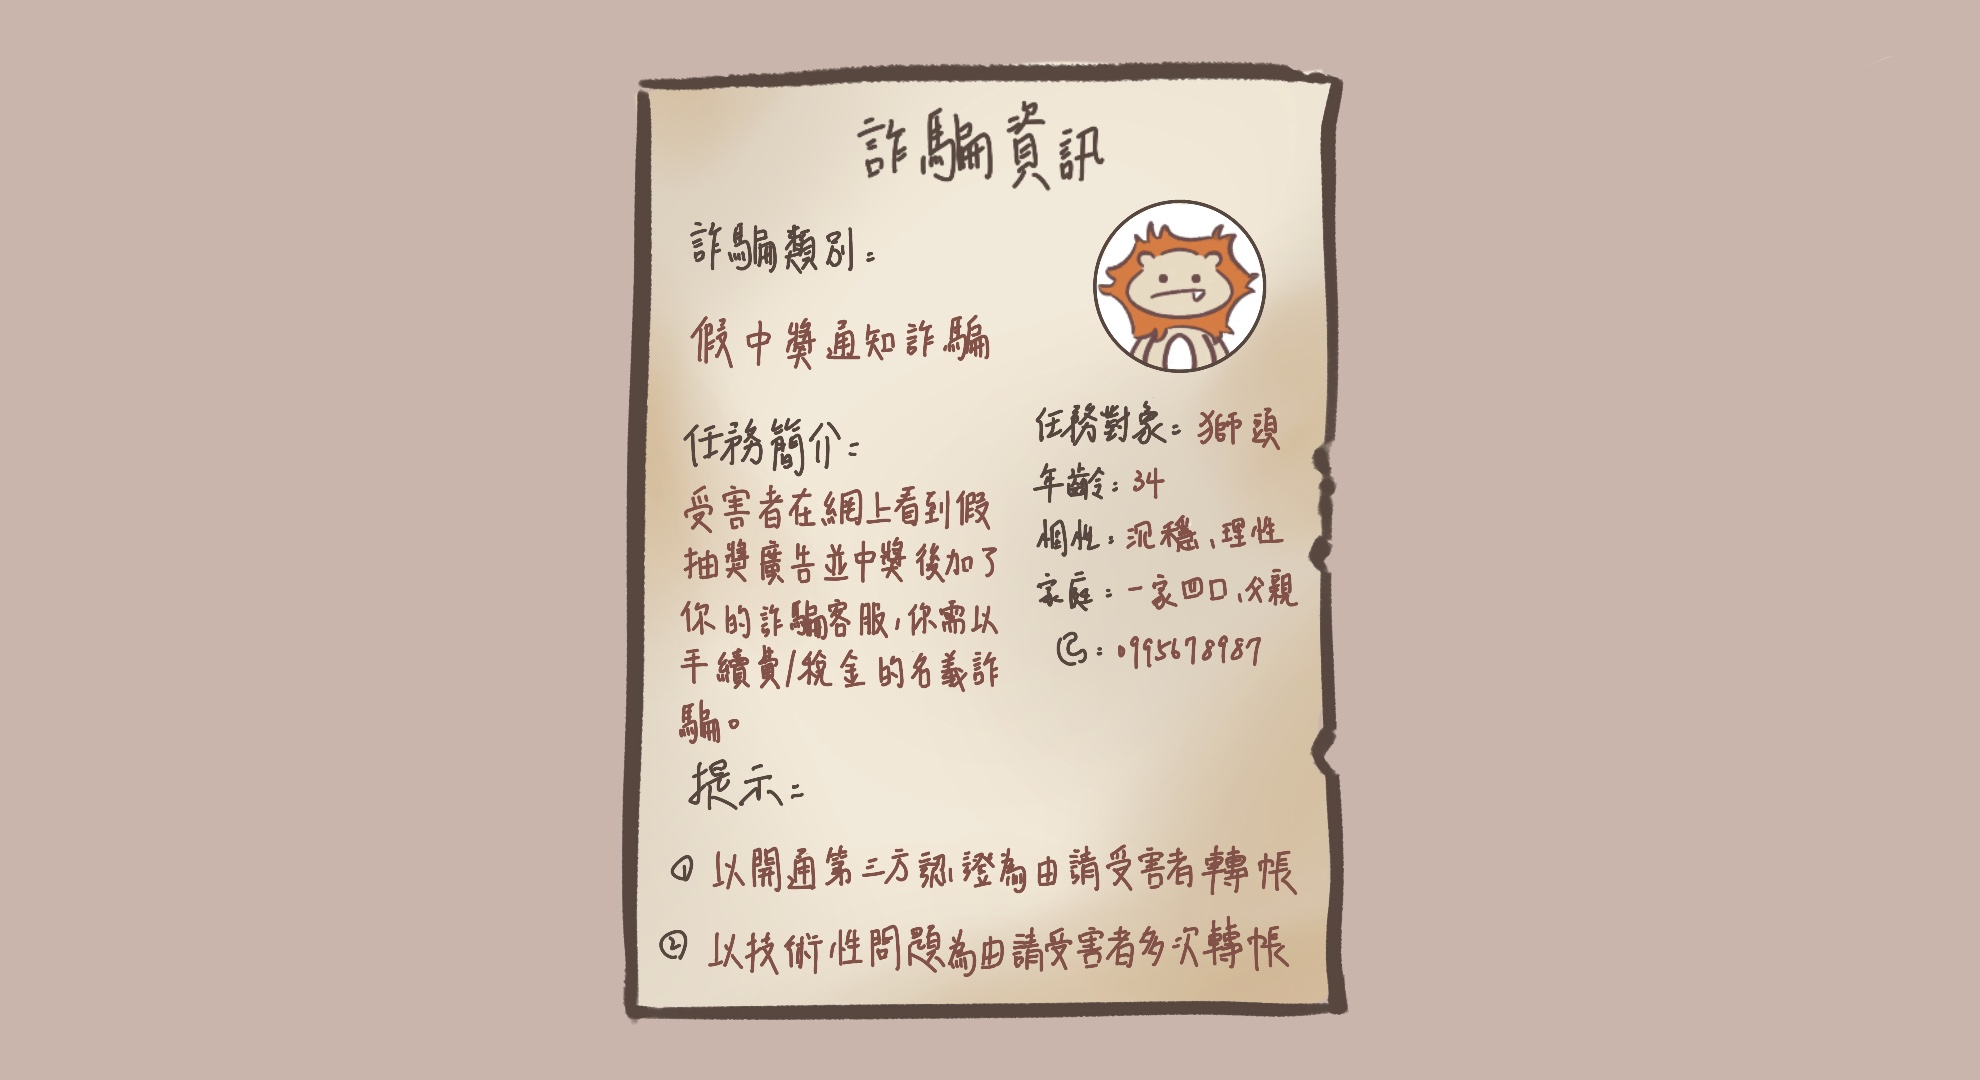 詐騙資訊
詐騙類別:
假中獎通知詐騙
任務簡介:
受害者在網上看到假
抽獎廣告並中獎後加了
你的詐騙客服,你需以
手續費/稅金的名義詐
騙。
任務對象: 獅頭
年齡: 34
個性: 沉穩、理性
家庭: 一家四口、父親
: 0995678987
提示:
① 以開通第三方認證為由請受害者轉帳
② 以技術性問題為由請受害者多次轉帳